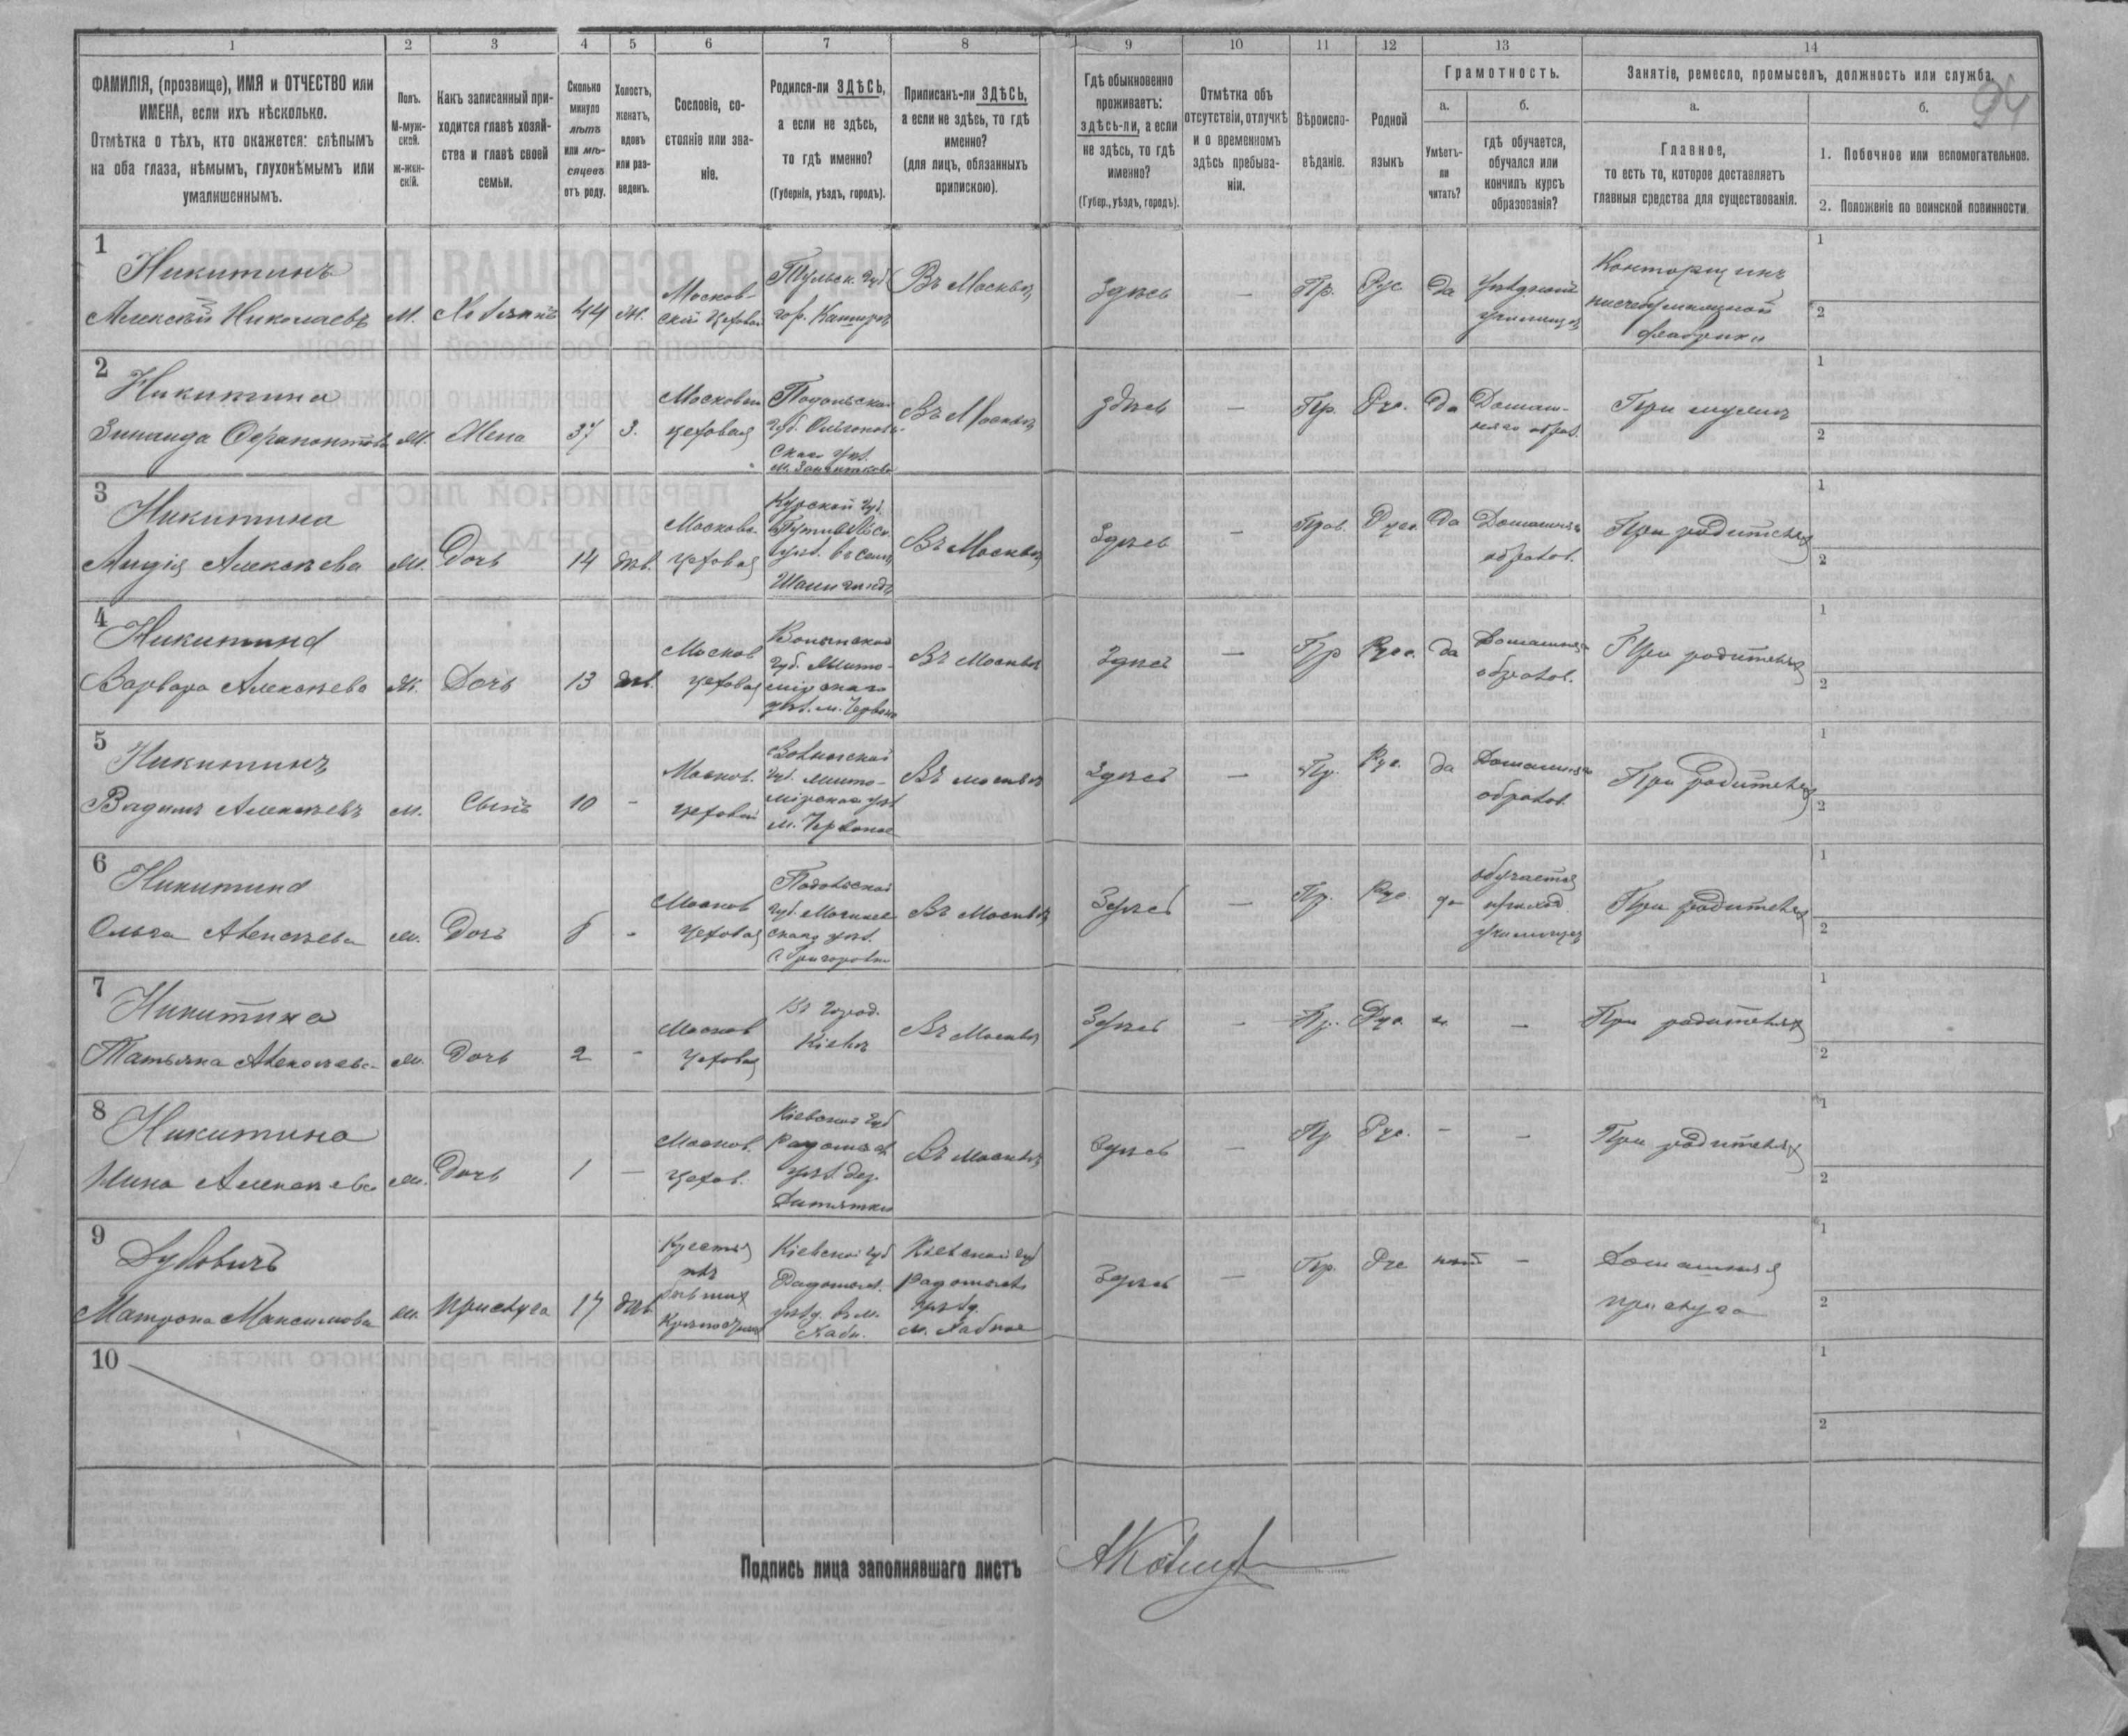 1 2 3 4 5 6 7 8 9 10 11 12 13 14
94
ФАМИЛІЯ, (прозвище), ИМЯ и ОТЧЕСТВО или
ИМЕНА, если ихъ нѣсколько.
Отмѣтка о тѣхъ, кто окажется: слѣпымъ
на оба глаза, нѣмымъ, глухонѣмымъ или
умалишеннымъ.
Полъ.
М-муж-
ской.
ж-жен-
скій.
Какъ записанный при-
ходится главѣ хозяй-
ства и главѣ своей
семьи.
Сколько
минуло
лѣтъ
или мѣ-
сяцевъ
отъ роду.
Холостъ,
женатъ,
вдовъ
или раз-
веденъ.
Сословіе, со-
стояніе или зва-
ніе.
Родился-ли ЗДѢСЬ,
а если не здѣсь,
то гдѣ именно?
(Губернія, уѣздъ, городъ).
Приписанъ-ли ЗДѢСЬ,
а если не здѣсь, то гдѣ
именно?
(для лицъ, обязанныхъ
припискою).
Гдѣ обыкновенно
проживаетъ:
здѣсь-ли, а если
не здѣсь, то гдѣ
именно?
(Губер., уѣздъ, городъ).
Отмѣтка объ
отсутствіи, отлучкѣ
и о временномъ
здѣсь пребыва-
ніи.
Вѣроиспо-
вѣданіе.
Родной
языкъ
Грамотность.
а.
Умѣетъ-
ли
читать?
б.
гдѣ обучается,
обучался или
кончилъ курсъ
образованія?
Занятіе, ремесло, промыселъ, должность или служба.
а.
Главное,
то есть то, которое доставляетъ
главныя средства для существованія.
б.
1. Побочное или вспомогательное.
2. Положеніе по воинской повинности.
1
Никитинъ
Алексѣй Николаевъ
М.
Хозяинъ
44
ж.
Москов-
скій цеховой
Тульск. губ.
гор. Кашира
Въ Москвѣ
Здѣсь
—
Пр.
Рус
да
Уѣздномъ
училищѣ
Конторщикъ
писчебумажной
фабрики
1
2
2
Никитина
Зинаида Ферапонтова
Ж.
Жена
37
З.
Московская
цеховая
Подольской
губ. Ольгопол-
скаго уѣз.
Въ Москвѣ
Здѣсь
—
Пр.
Рус.
да
Домаш-
няго образ.
При мужѣ
1
2
3
Никитина
Лидія Алексѣева
Ж.
Дочь
14
дѣв.
Московс.
цеховая
Курской губ.
Путивльск.
уѣз. въ селѣ
Въ Москвѣ
Здѣсь
—
Прав.
Русс.
да
Домашняго
образов.
При родителяхъ
1
2
4
Никитина
Варвара Алексѣева
Ж.
Дочь
13
дѣв.
Москов
цеховая
Волынской
губ. Жито-
мірскаго
уѣз. м. Червоно
Въ Москвѣ
Здѣсь
—
Пр
Русс.
да
Домашняго
образов.
При родителяхъ
1
2
5
Никитинъ
Вадимъ Алексѣевъ
м.
Сынъ
10
-
Москов.
цеховой
Волынской
губ. Жито-
мірскаго уѣз
м. Червоное
Въ Москвѣ
Здѣсь
—
Пр.
Рус.
да
Домашняго
образов.
При родителяхъ
1
2
6
Никитина
Ольга Алексѣева
ж.
Дочь
8
-
Москов
цеховая
Подольской
губ. Могилев-
скаго уѣз.
с. Григоровки
Въ Москвѣ
Здѣсь
—
Пр.
Рус.
да
обучается
приход.
училищѣ
При родителяхъ
1
2
7
Никитина
Татьяна Алексѣева
ж.
Дочь
2
-
Москов
цеховая
Въ город.
Кіевѣ
Въ Москвѣ
Здѣсь
—
Пр.
Рус.
н.
—
При родителяхъ
1
2
8
Никитина
Нина Алексѣева
ж.
Дочь
1
—
Москов.
цехов.
Кіевской губ
Радомысл
уѣз. дер.
Дитятки
Въ Москвѣ
Здѣсь
—
Пр
Рус.
-
-
При родителяхъ
1
2
9
Дубовичъ
Матрона Максимова
ж.
прислуга
17
дѣв
Крестья
Кіевской губ
Радомысл.
уѣзд. в м.
Хабн.
Кіевской губ
Радомысл
уѣзд.
м. Хабное
Здѣсь
—
Пр.
Рус
нѣт
—
Домашняя
прислуга
1
2
10
1
2
Подпись лица заполнявшаго листъ